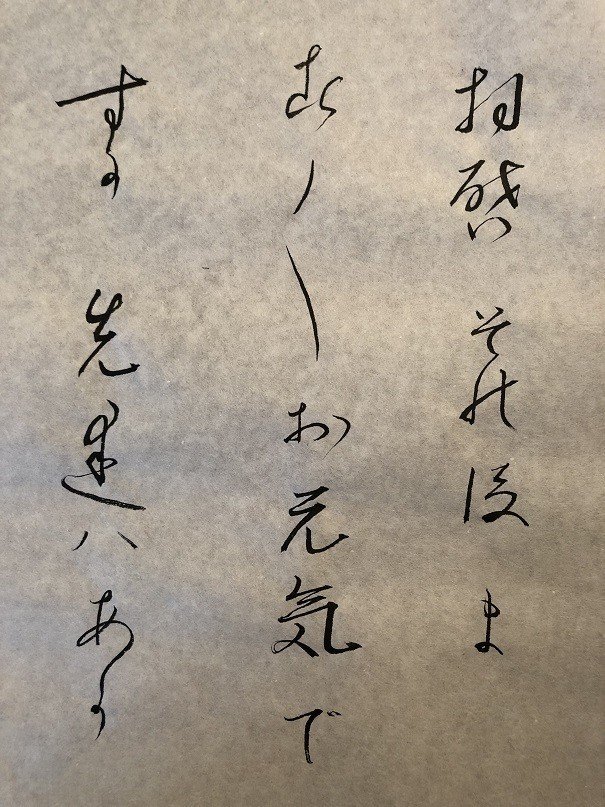 拝啓 その後ま
す〱お元気で
すか 先達ハあ